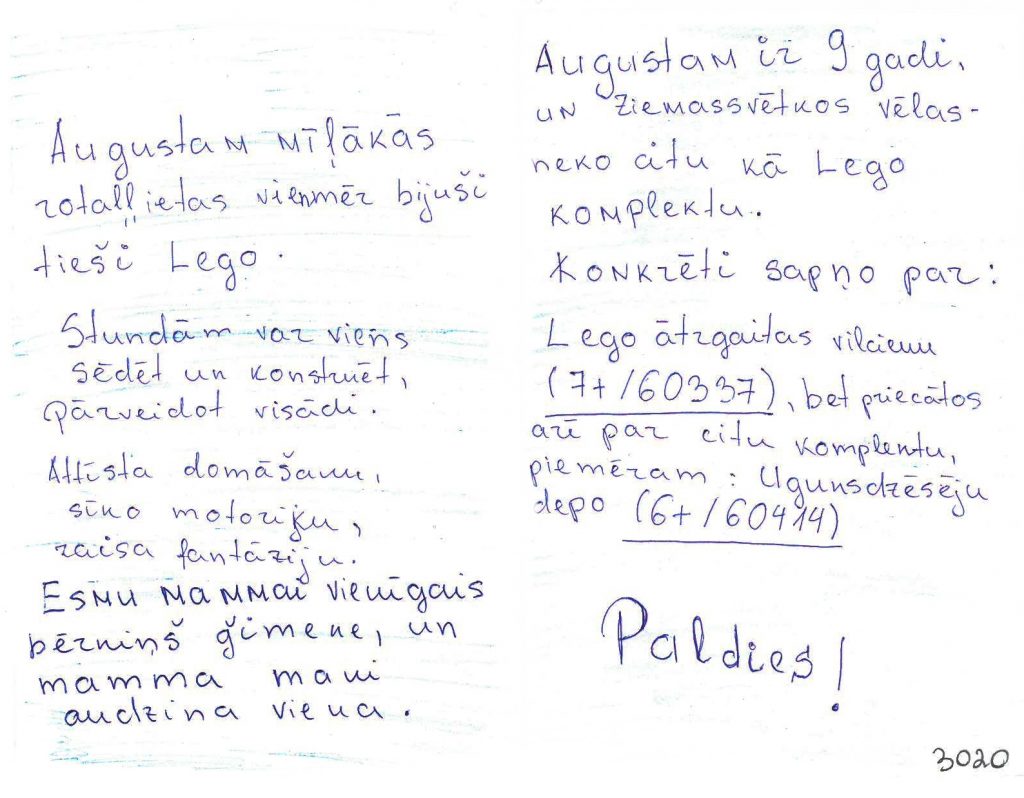 Augustam mīļākās
rotaļļietas vienmēr bijuši
tieši Lego.
Stundām var viens
sēdēt un konstruēt,
pārveidot visādi.
Attīsta domāšanu,
sīko motoriku,
raisa fantāziju.
Esmu mammai vienīgais
bērniņš ģimene, un
mamma mani
audzina viena.
Augustam ir 9 gadi,
un Ziemassvētkos vēlas
neko citu kā Lego
komplektu.
Konkrēti sapņo par:
Lego ātrgaitas vilcienu
(7+/60337), bet priecātos
arī par citu komplentu,
piemēram: Ugunsdzēsēju
depo (6+/60414)
Paldies!
3020